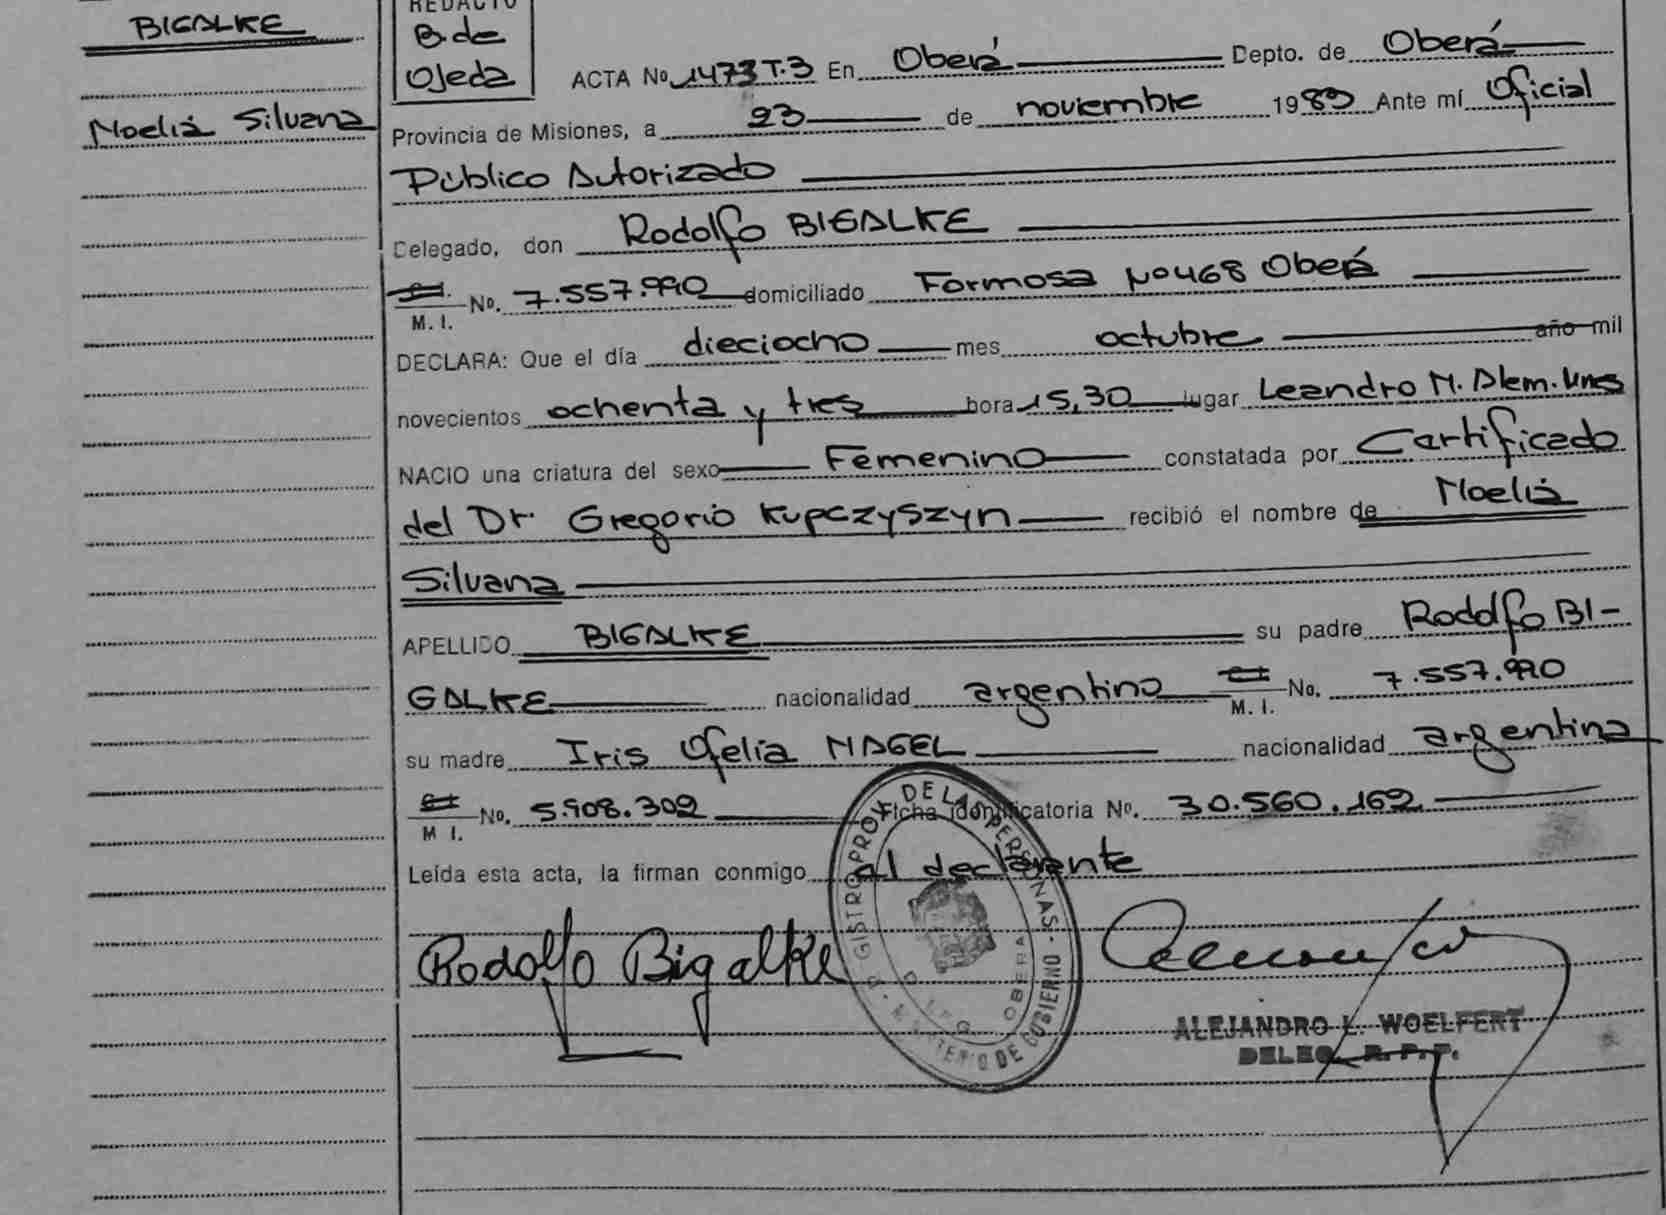 BIGALKE
Noelia Silvana
REDACTO
B. de
Ojeda
ACTA No. 1473 T.3 En Oberá Depto. de Oberá
Provincia de Misiones, a 23 de noviembre 1983 Ante mí Oficial
Público Autorizado
Delegado, don Rodolfo BIGALKE
M. I. No. 7.557.990 domiciliado Formosa Nº 468 Oberá
DECLARA: Que el día dieciocho mes octubre año mil
novecientos ochenta y tres hora 15,30 lugar Leandro N. Alem. Mnes
NACIO una criatura del sexo Femenino constatada por Certificado
del Dr. Gregorio Kupczyszyn recibió el nombre de Noelia
Silvana
APELLIDO BIGALKE su padre Rodolfo BI-
GALKE nacionalidad argentino M. I. No. 7.557.990
su madre Iris Ofelia NAGEL nacionalidad argentina
M I. No. 5.908.302 Ficha identificatoria No. 30.560.162
Leída esta acta, la firman conmigo el declarante
Rodolfo Bigalke
GISTRO PROV. DE LAS PERSONAS - MINISTERIO DE GOBIERNO
OBERA
ALEJANDRO L. WOELFERT
DELEG. R. P. P.